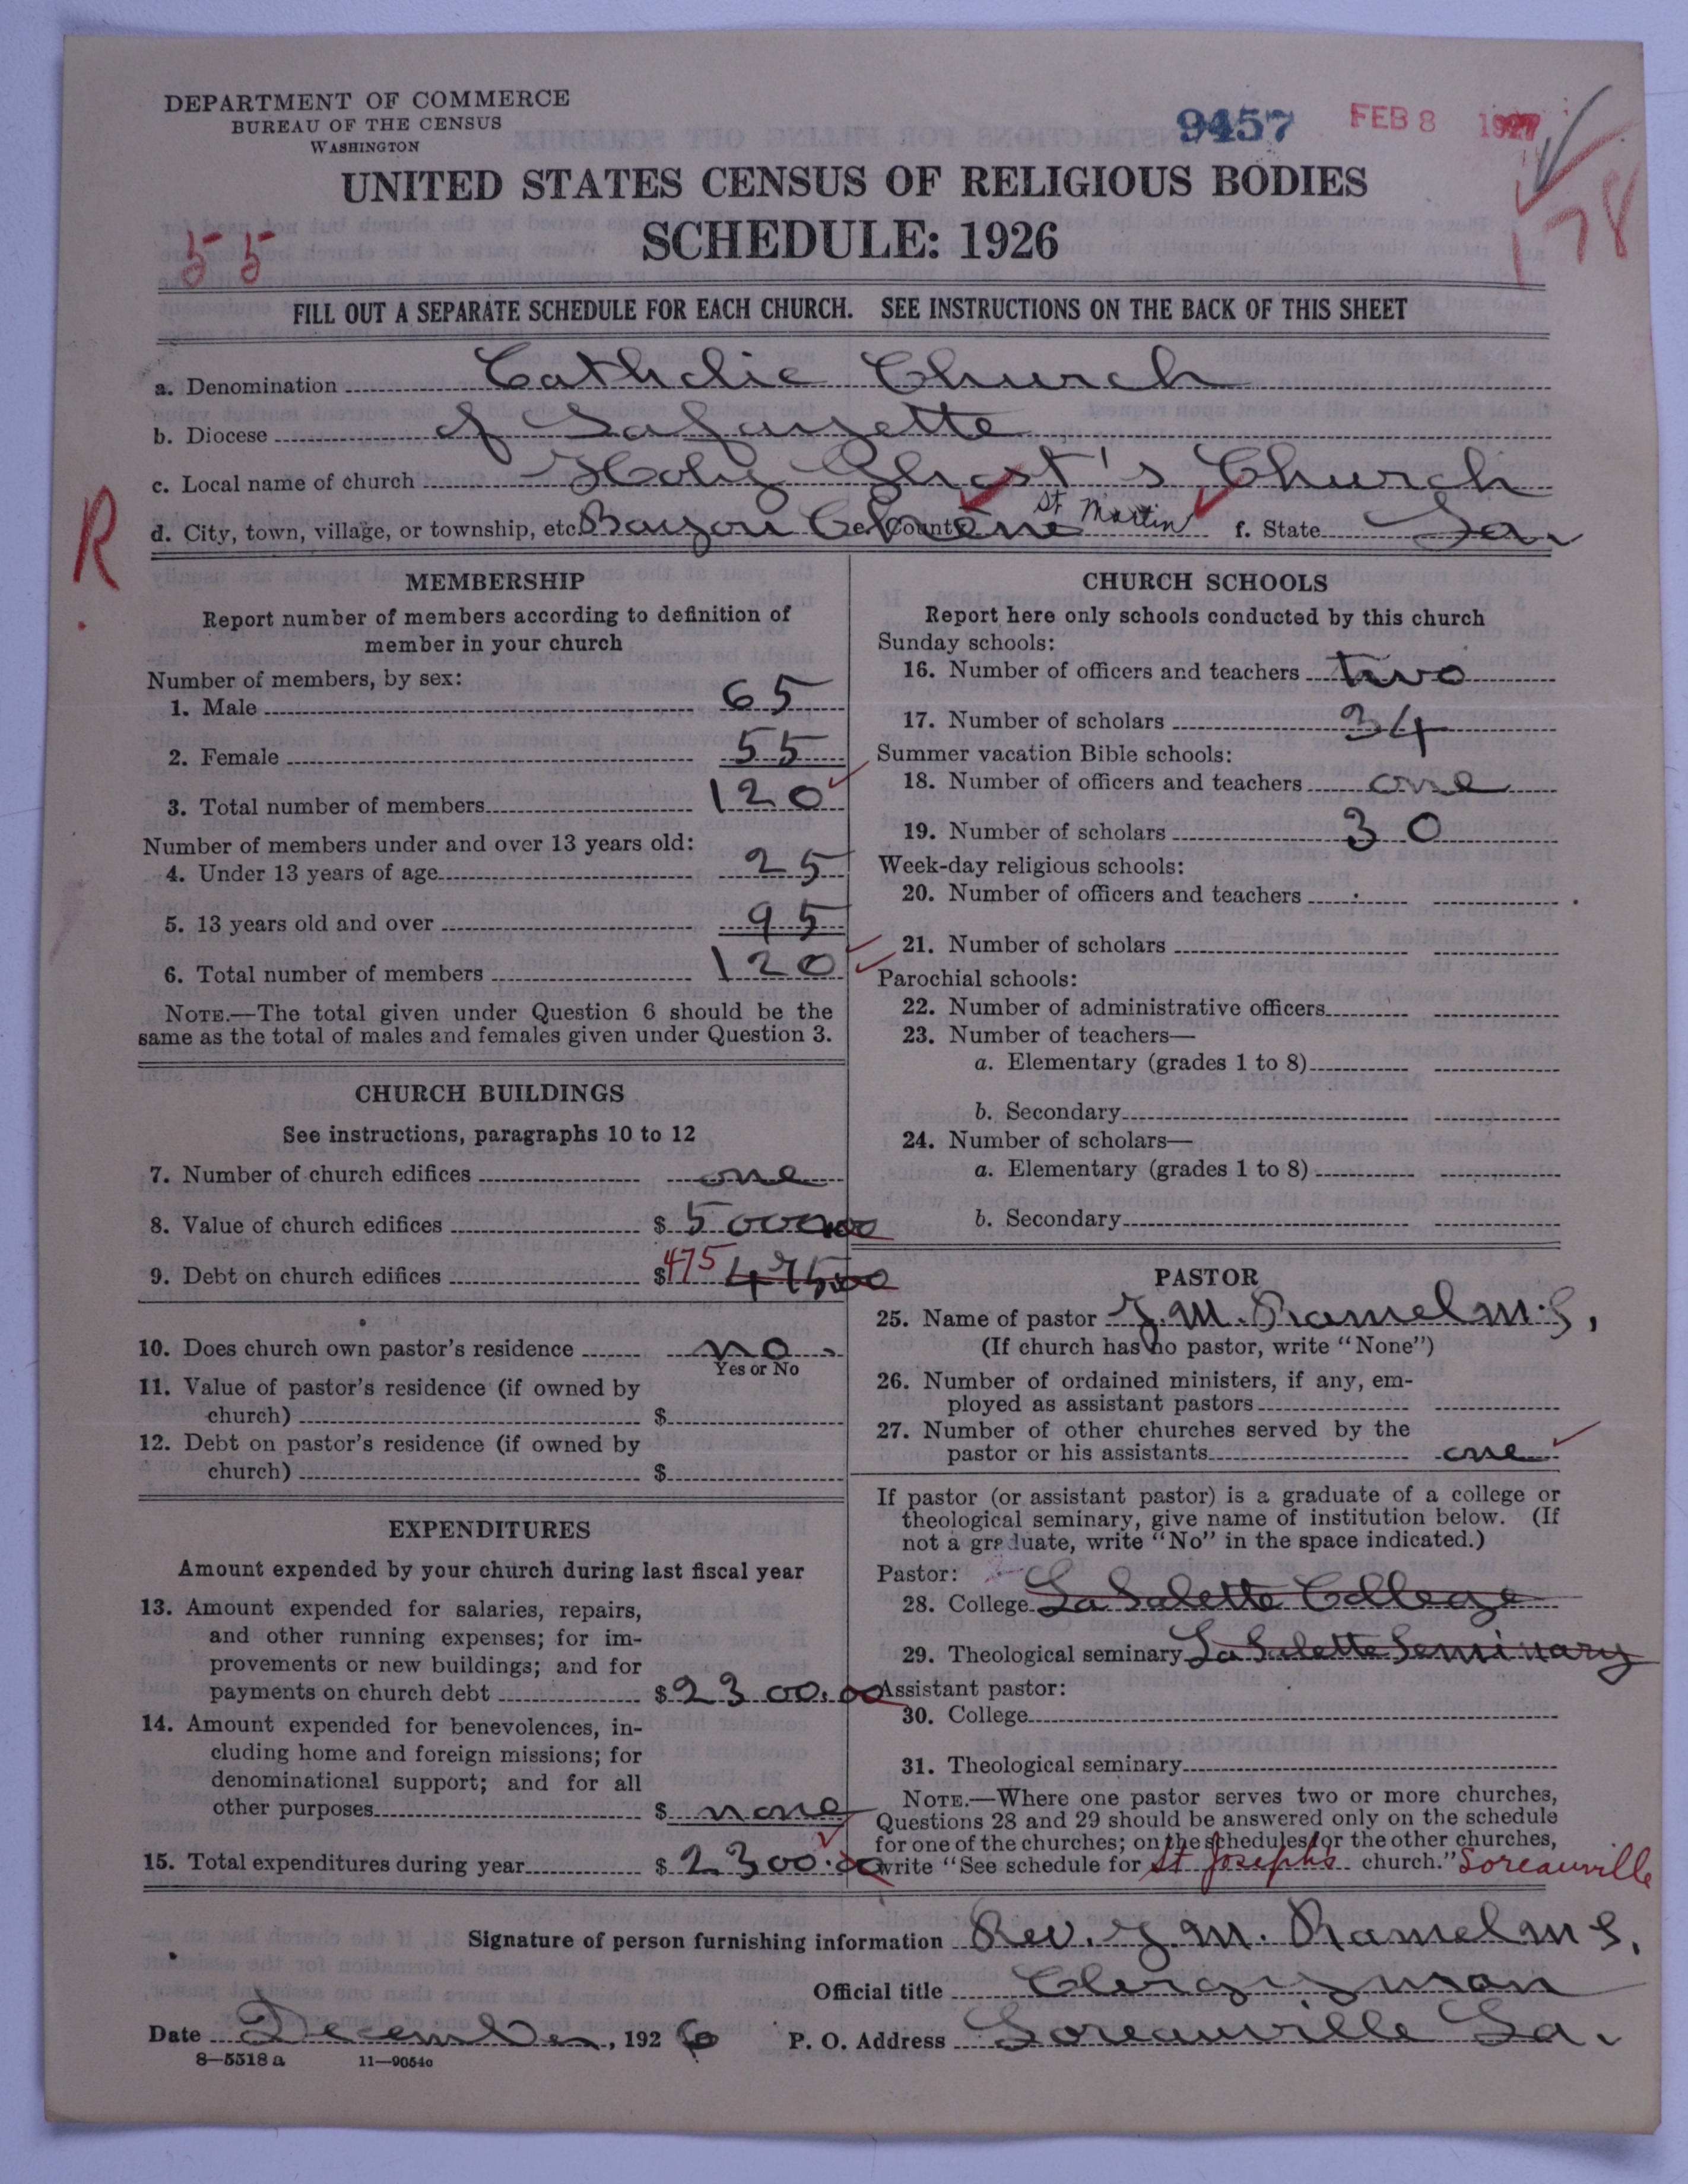 DEPARTMENT OF COMMERCE
BUREAU OF THE CENSUS
WASHINGTON
9457 FEB 8 1927
UNITED STATES CENSUS OF RELIGIOUS BODIES
SCHEDULE: 1926
55
178
FILL OUT A SEPARATE SCHEDULE FOR EACH CHURCH. SEE INSTRUCTIONS ON THE BACK OF THIS SHEET
a. Denomination Catholic Church
b. Diocese of Lafayette
c. Local name of church Holy Ghost's Church
R.
d. City, town, village, or township, etc. Bayou Chêne e. County St Martin f. State La.
MEMBERSHIP
Report number of members according to definition of
member in your church
Number of members, by sex:
1. Male 65
2. Female 55
3. Total number of members 120
Number of members under and over 13 years old:
4. Under 13 years of age 25
5. 13 years old and over 95
6. Total number of members 120
NOTE.—The total given under Question 6 should be the
same as the total of males and females given under Question 3.
CHURCH BUILDINGS
See instructions, paragraphs 10 to 12
7. Number of church edifices one
8. Value of church edifices $ 5000.00
9. Debt on church edifices $ 475 475.00
10. Does church own pastor's residence no.
Yes or No
11. Value of pastor's residence (if owned by
church) $
12. Debt on pastor's residence (if owned by
church) $
EXPENDITURES
Amount expended by your church during last fiscal year
13. Amount expended for salaries, repairs,
and other running expenses; for im-
provements or new buildings; and for
payments on church debt $ 2300.00
14. Amount expended for benevolences, in-
cluding home and foreign missions; for
denominational support; and for all
other purposes $ none
15. Total expenditures during year $ 2300.00
CHURCH SCHOOLS
Report here only schools conducted by this church
Sunday schools:
16. Number of officers and teachers two
17. Number of scholars 34
Summer vacation Bible schools:
18. Number of officers and teachers one
19. Number of scholars 30
Week-day religious schools:
20. Number of officers and teachers
21. Number of scholars
Parochial schools:
22. Number of administrative officers
23. Number of teachers—
a. Elementary (grades 1 to 8)
b. Secondary
24. Number of scholars—
a. Elementary (grades 1 to 8)
b. Secondary
PASTOR
25. Name of pastor J. M. Ramel M.S.
(If church has no pastor, write "None")
26. Number of ordained ministers, if any, em-
ployed as assistant pastors
27. Number of other churches served by the
pastor or his assistants one
If pastor (or assistant pastor) is a graduate of a college or
theological seminary, give name of institution below. (If
not a graduate, write "No" in the space indicated.)
Pastor:
28. College La Salette College
29. Theological seminary La Salette Seminary
Assistant pastor:
30. College
31. Theological seminary
NOTE.—Where one pastor serves two or more churches,
Questions 28 and 29 should be answered only on the schedule
for one of the churches; on the schedules for the other churches,
write "See schedule for St Joseph's church." Loreauville
Signature of person furnishing information Rev. J. M. Ramel M S.
Official title Clergyman
Date December, 1926 P. O. Address Loreauville La.
8—5518 a 11—9054c